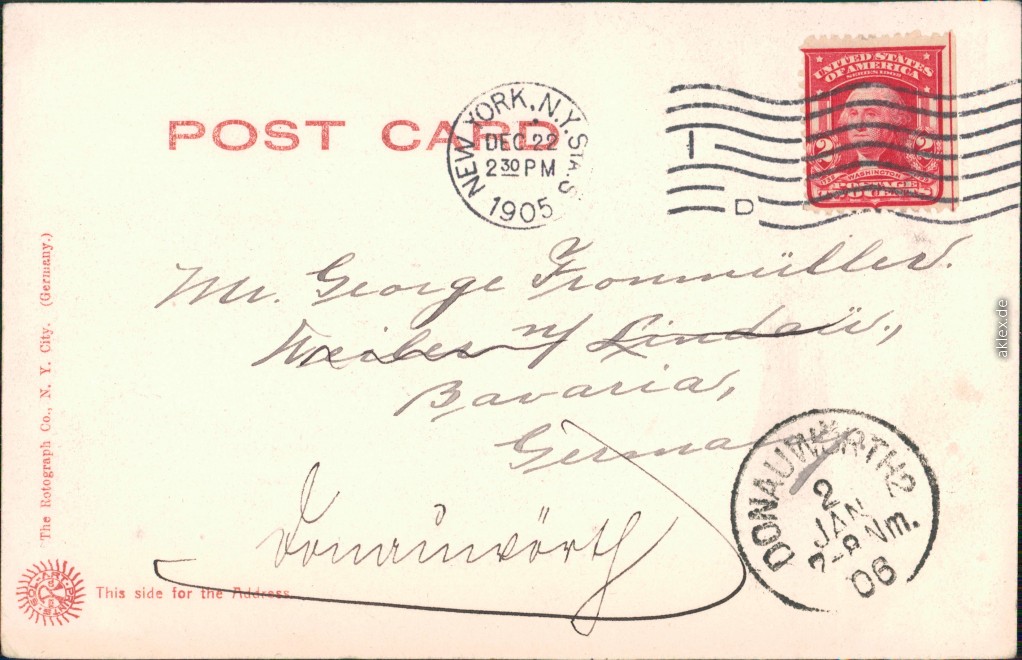 UNITED STATES
OF AMERICA
SERIES 1902
2 2
WASHINGTON
POST CARD
NEW YORK, N.Y. STA. S
DEC 22
2 30 PM
1905
I
D
Mr. George Fronmüller.
Weiler n/ Lindau.,
Bavaria,
Germany
Donauwörth
DONAUWÖRTH 2
2
JAN
7-8 Nm.
06
The Rotograph Co., N. Y. City. (Germany.)
SOL-ART-PRINTS
This side for the Address
aklex.de